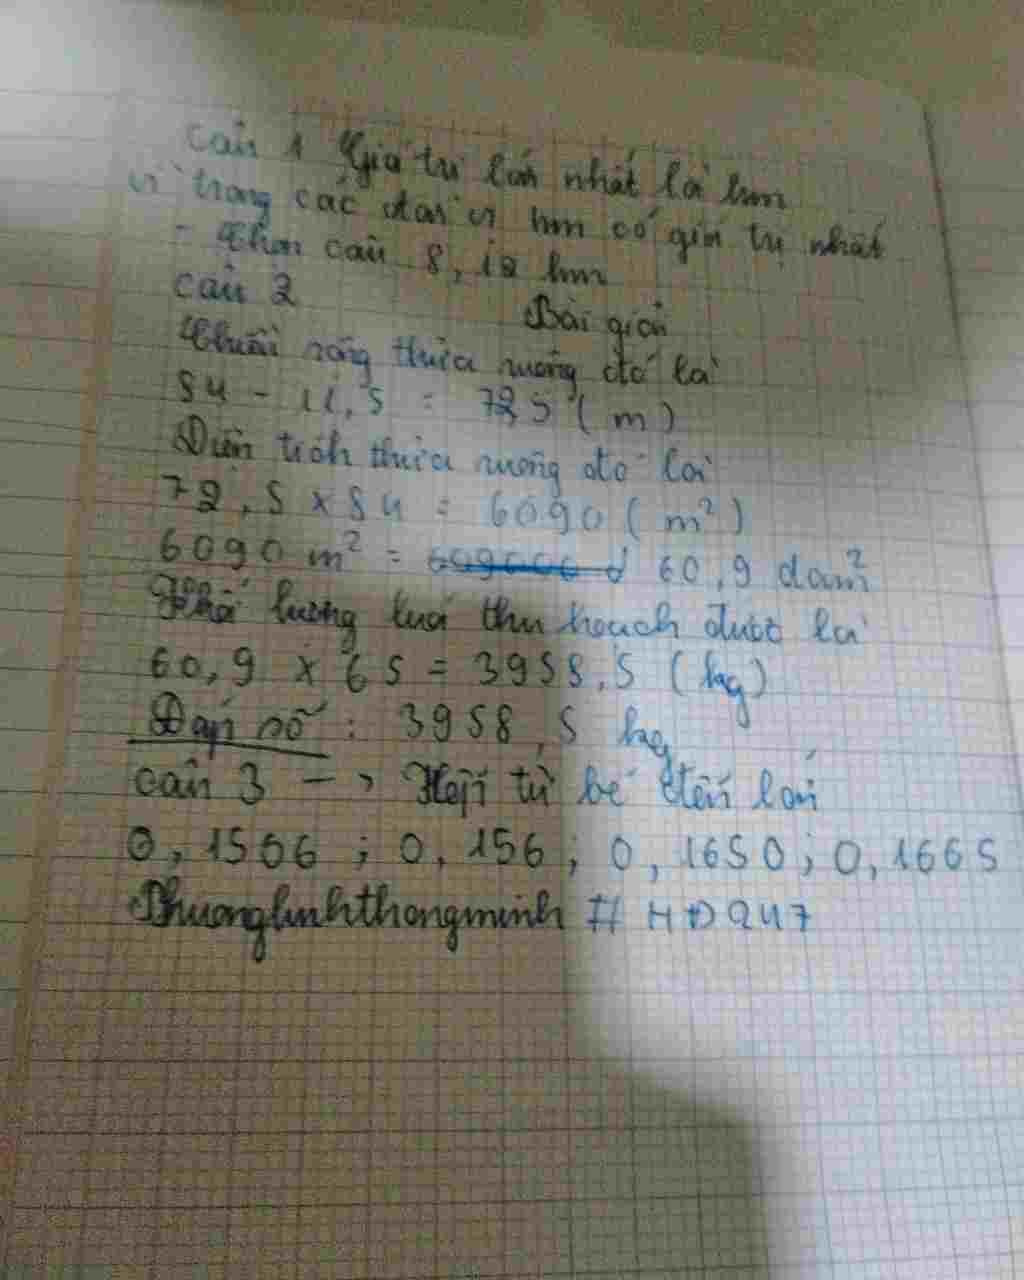 Câu 1 Giá trị lớn nhất là hm
vì trong các đơn vị hm có giá trị nhất
- Chọn câu 8,12 hm
Câu 2
Bài giải
Chiều rộng thửa ruộng đó là
84 - 11,5 = 725 (m)
Diện tích thửa ruộng đó là
72,5 x 84 = 6090 (m²)
6090 m² = 60,9 dam²
Khối lượng lúa thu hoạch được là
60,9 x 65 = 3958,5 (kg)
Đáp số : 3958,5 kg
câu 3 - , Xếp từ bé đến lớn
0,1506 ; 0,156 ; 0,1650 ; 0,1665
Phuonglinhthongminh # HĐ247